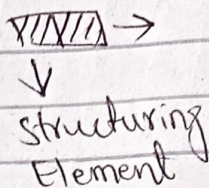 structuring
Element